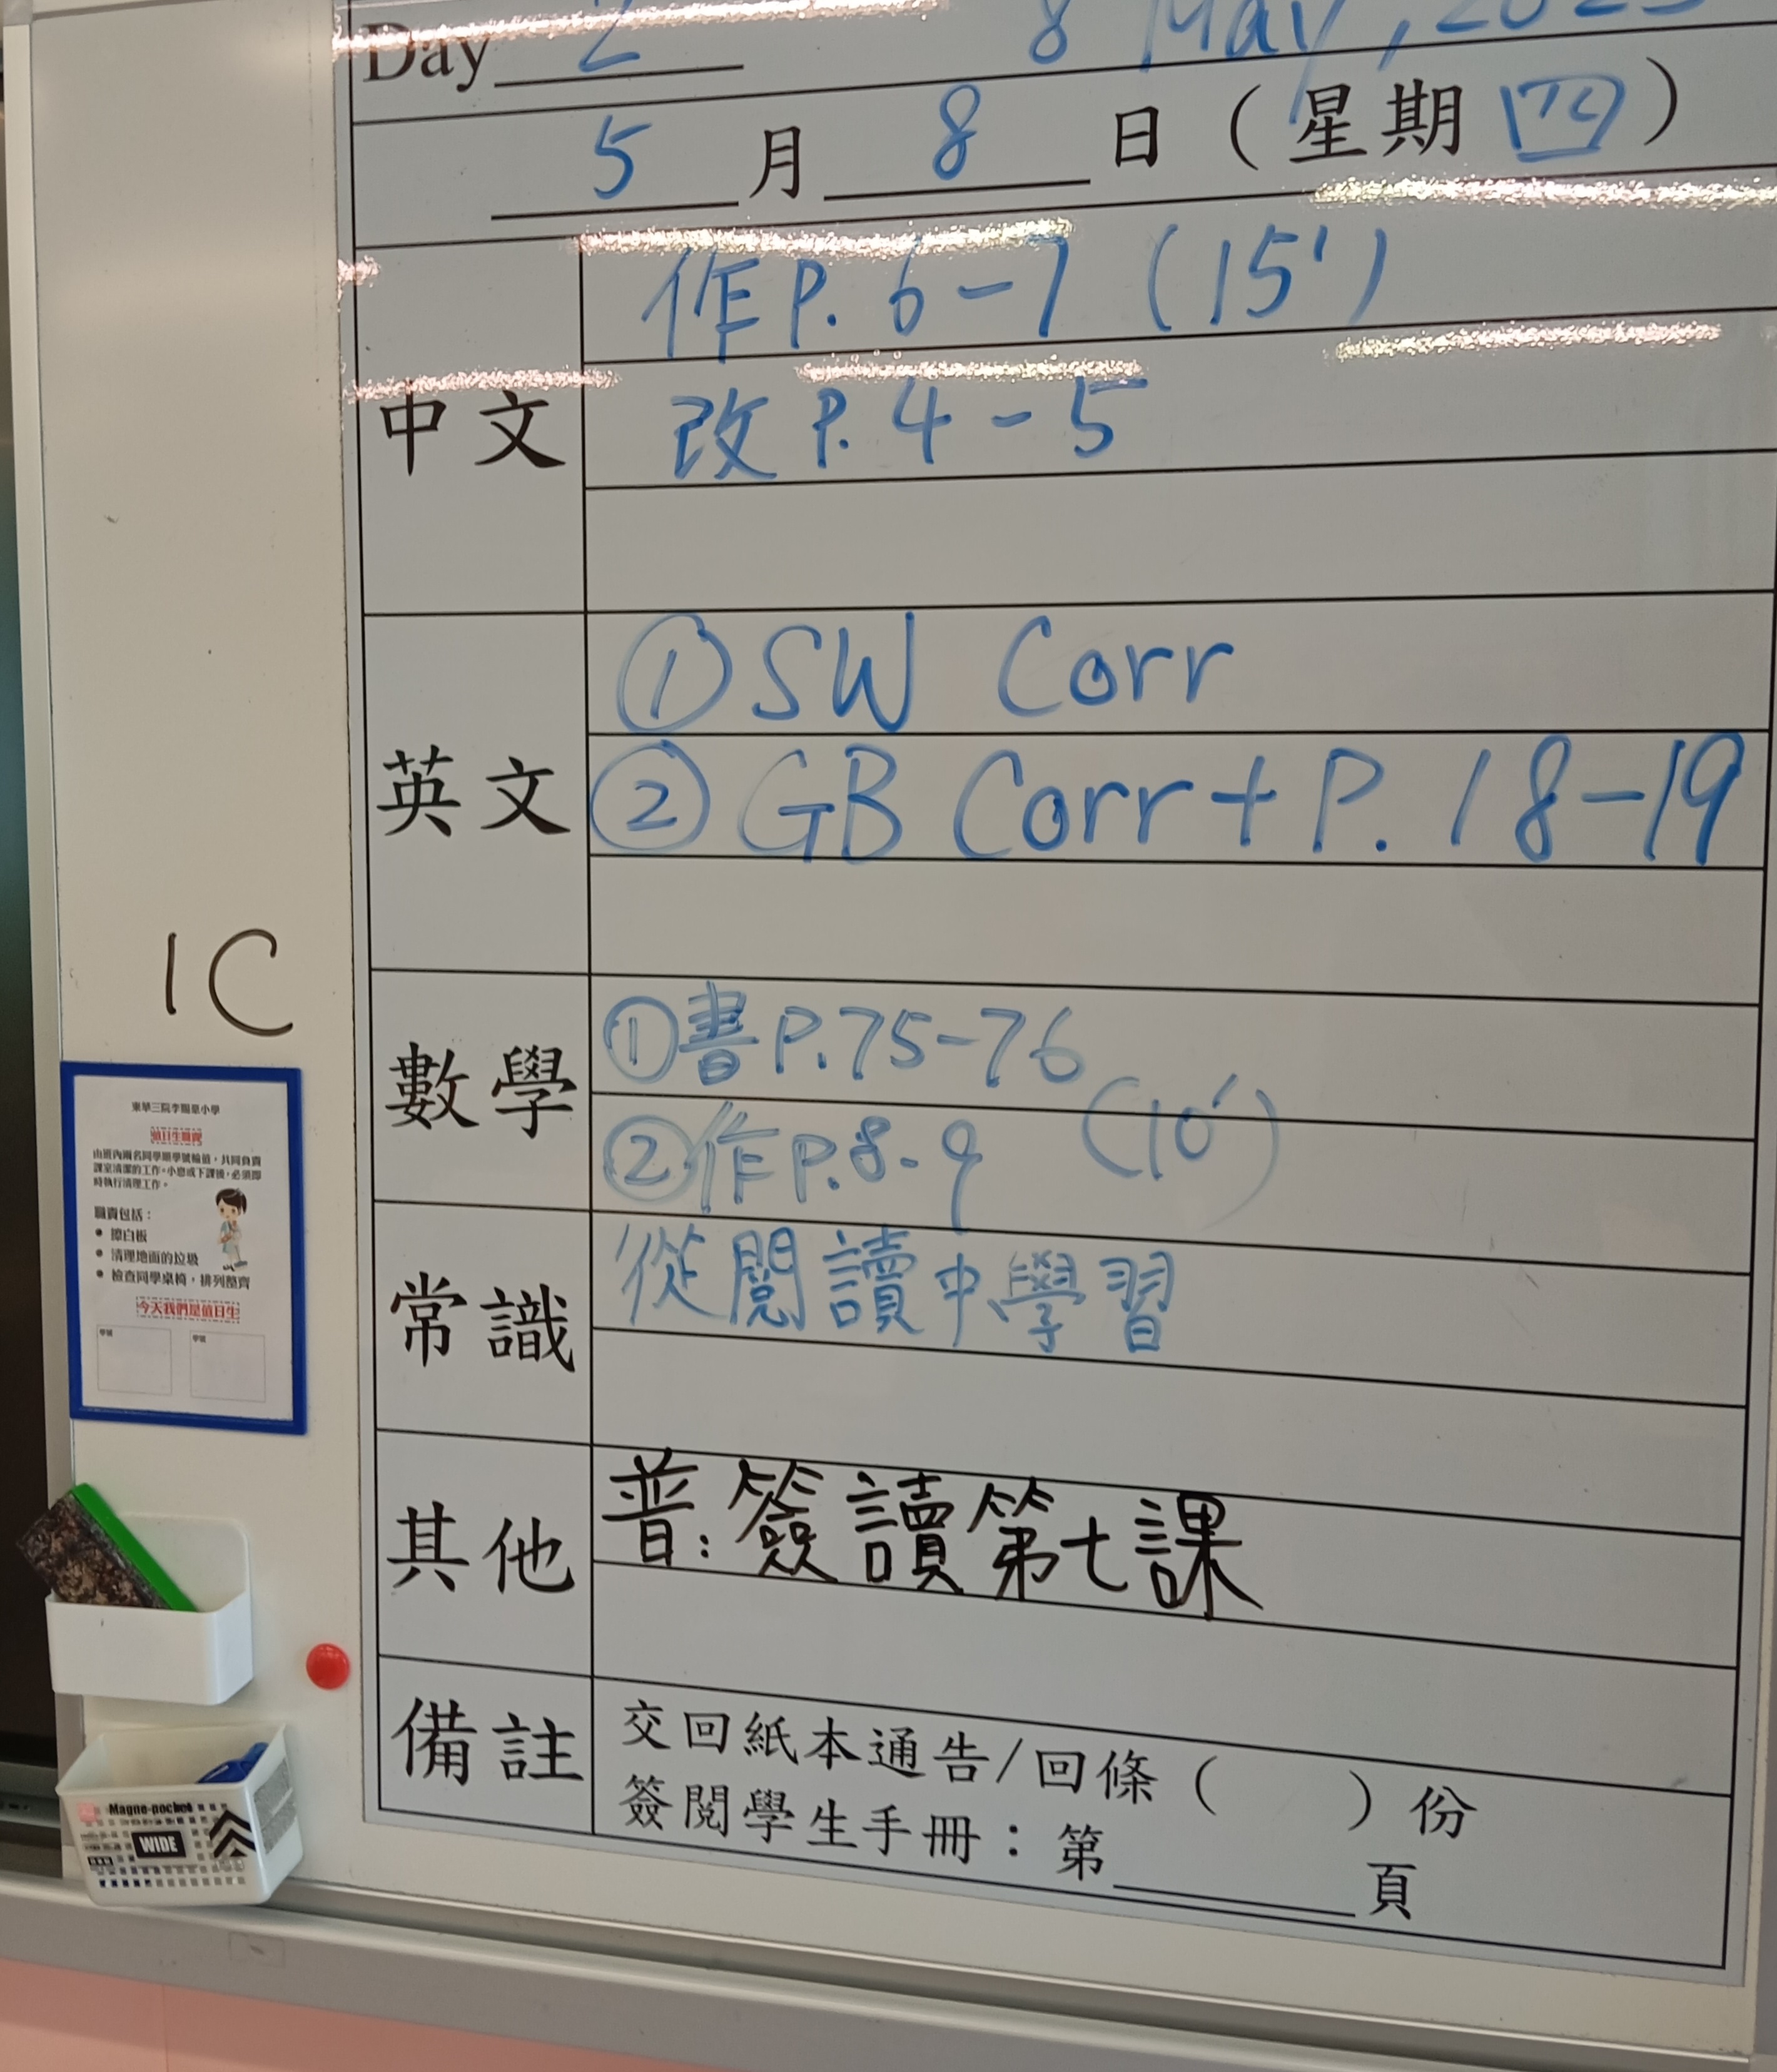 Day 2 8 May, 2025
5 月 8 日（星期四）
中文
作 P. 6-7 (15')
改 P. 4-5
英文
① SW Corr
② GB Corr + P. 18-19
數學
① 書 P.75-76
② 作 P.8-9 (10')
常識
從閱讀中學習
其他
普：簽讀第七課
備註
交回紙本通告/回條（ ）份
簽閱學生手冊：第______頁
1C
值日生職責
由班內兩名同學順學號輪值，共同負責
課室清潔的工作。小息或下課後，必須即
時執行清理工作。
職責包括：
● 擦白板
● 清理地面的垃圾
● 檢查同學桌椅，排列整齊
今天我們是值日生
學號 學號
Magne-pocket
WIDE